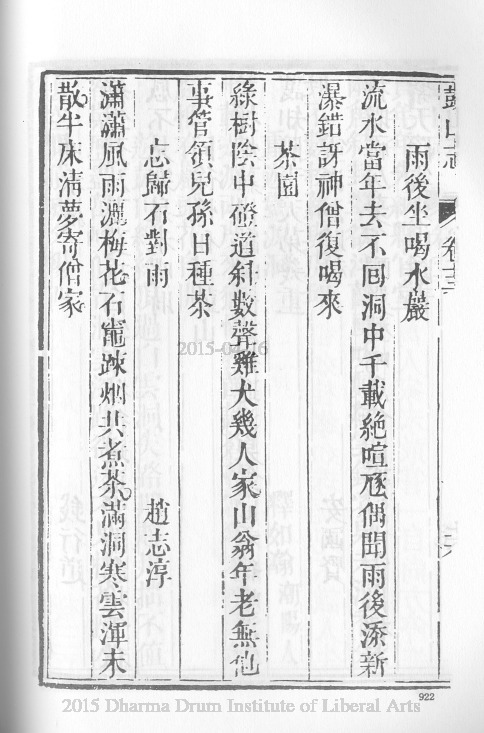 鼓山志 卷十三
雨後坐喝水巖
流水當年去不回洞中千載絶喧豗偶聞雨後添新
瀑錯訝神僧復喝來
茶園
綠樹陰中磴道斜數聲雞犬幾人家山翁年老無他
事管領兒孫日種茶
忘歸石對雨 趙志淳
瀟瀟風雨灑梅花石竈踈烟共煮茶滿洞寒雲渾未
散半床清夢寄僧家
922
2015-04-16
2015 Dharma Drum Institute of Liberal Arts